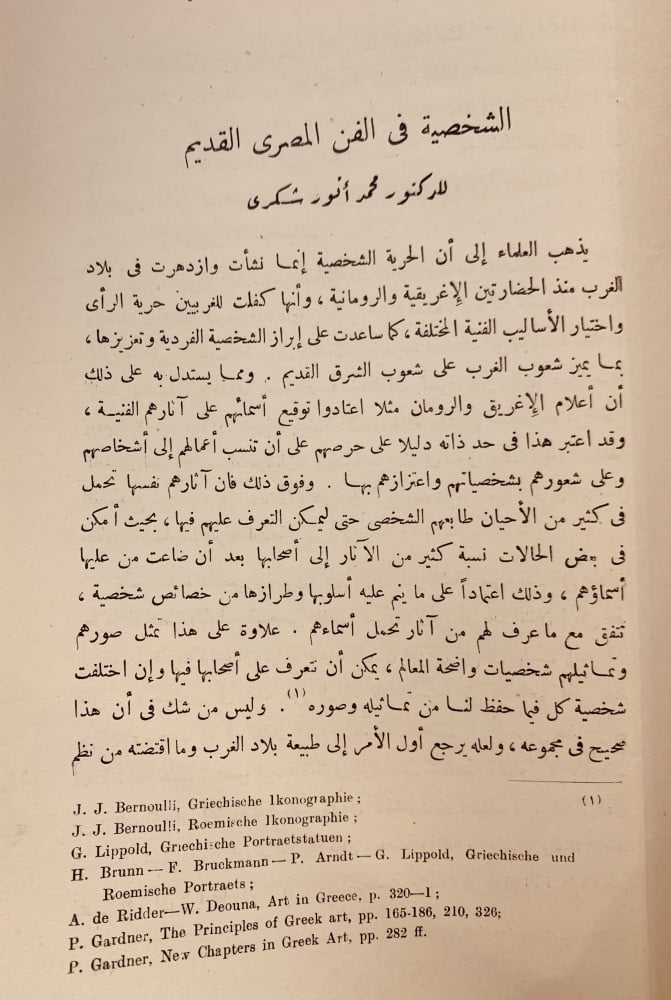 الشخصية فى الفن المصرى القديم
للدكتور محمد أنور شكرى
يذهب العلماء إلى أن الحرية الشخصية إنما نشأت وازدهرت فى بلاد
الغرب منذ الحضارتين الإغريقية والرومانية ، وأنها كفلت للغربيين حرية الرأى
واختيار الأساليب الفنية المختلفة ، كما ساعدت على إبراز الشخصية الفردية وتعزيزها ،
بما يميز شعوب الغرب على شعوب الشرق القديم . ومما يستدل به على ذلك
أن أعلام الإغريق والرومان مثلا اعتادوا توقيع أسمائهم على آثارهم الفنية ،
وقد اعتبر هذا فى حد ذاته دليلا على حرصهم على أن تنسب أعمالهم إلى أشخاصهم
وعلى شعورهم بشخصياتهم واعتزازهم بها . وفوق ذلك فان آثارهم نفسها تحمل
فى كثير من الأحيان طابعهم الشخصى حتى ليمكن التعرف عليهم فيها ، بحيث أمكن
فى بعض الحالات نسبة كثير من الآثار إلى أصحابها بعد أن ضاعت من عليها
أسماؤهم ، وذلك اعتماداً على ما ينم عليه أسلوبها وطرازها من خصائص شخصية ،
تتفق مع ما عرف لهم من آثار تحمل أسماءهم . علاوة على هذا تمثل صورهم
وتماثيلهم شخصيات واضحة المعالم ، يمكن أن نتعرف على أصحابها فيها وإن اختلفت
شخصية كل فيما حفظ لنا من تماثيله وصوره (١) . وليس من شك فى أن هذا
صحيح فى مجموعه ، ولعله يرجع أول الأمر إلى طبيعة بلاد الغرب وما اقتضته من نظم
(١) J. J. Bernoulli, Griechische Ikonographie ;
J. J. Bernoulli, Roemische Ikonographie ;
G. Lippold, Griechische Portraetstatuen ;
H. Brunn — F. Bruckmann — P. Arndt — G. Lippold, Griechische und
Roemische Portraets ;
A. de Ridder—W. Deouna, Art in Greece, p. 320—1 ;
P. Gardner, The Principles of Greek art, pp. 165-186, 210, 326;
P. Gardner, New Chapters in Greek Art, pp. 282 ff.